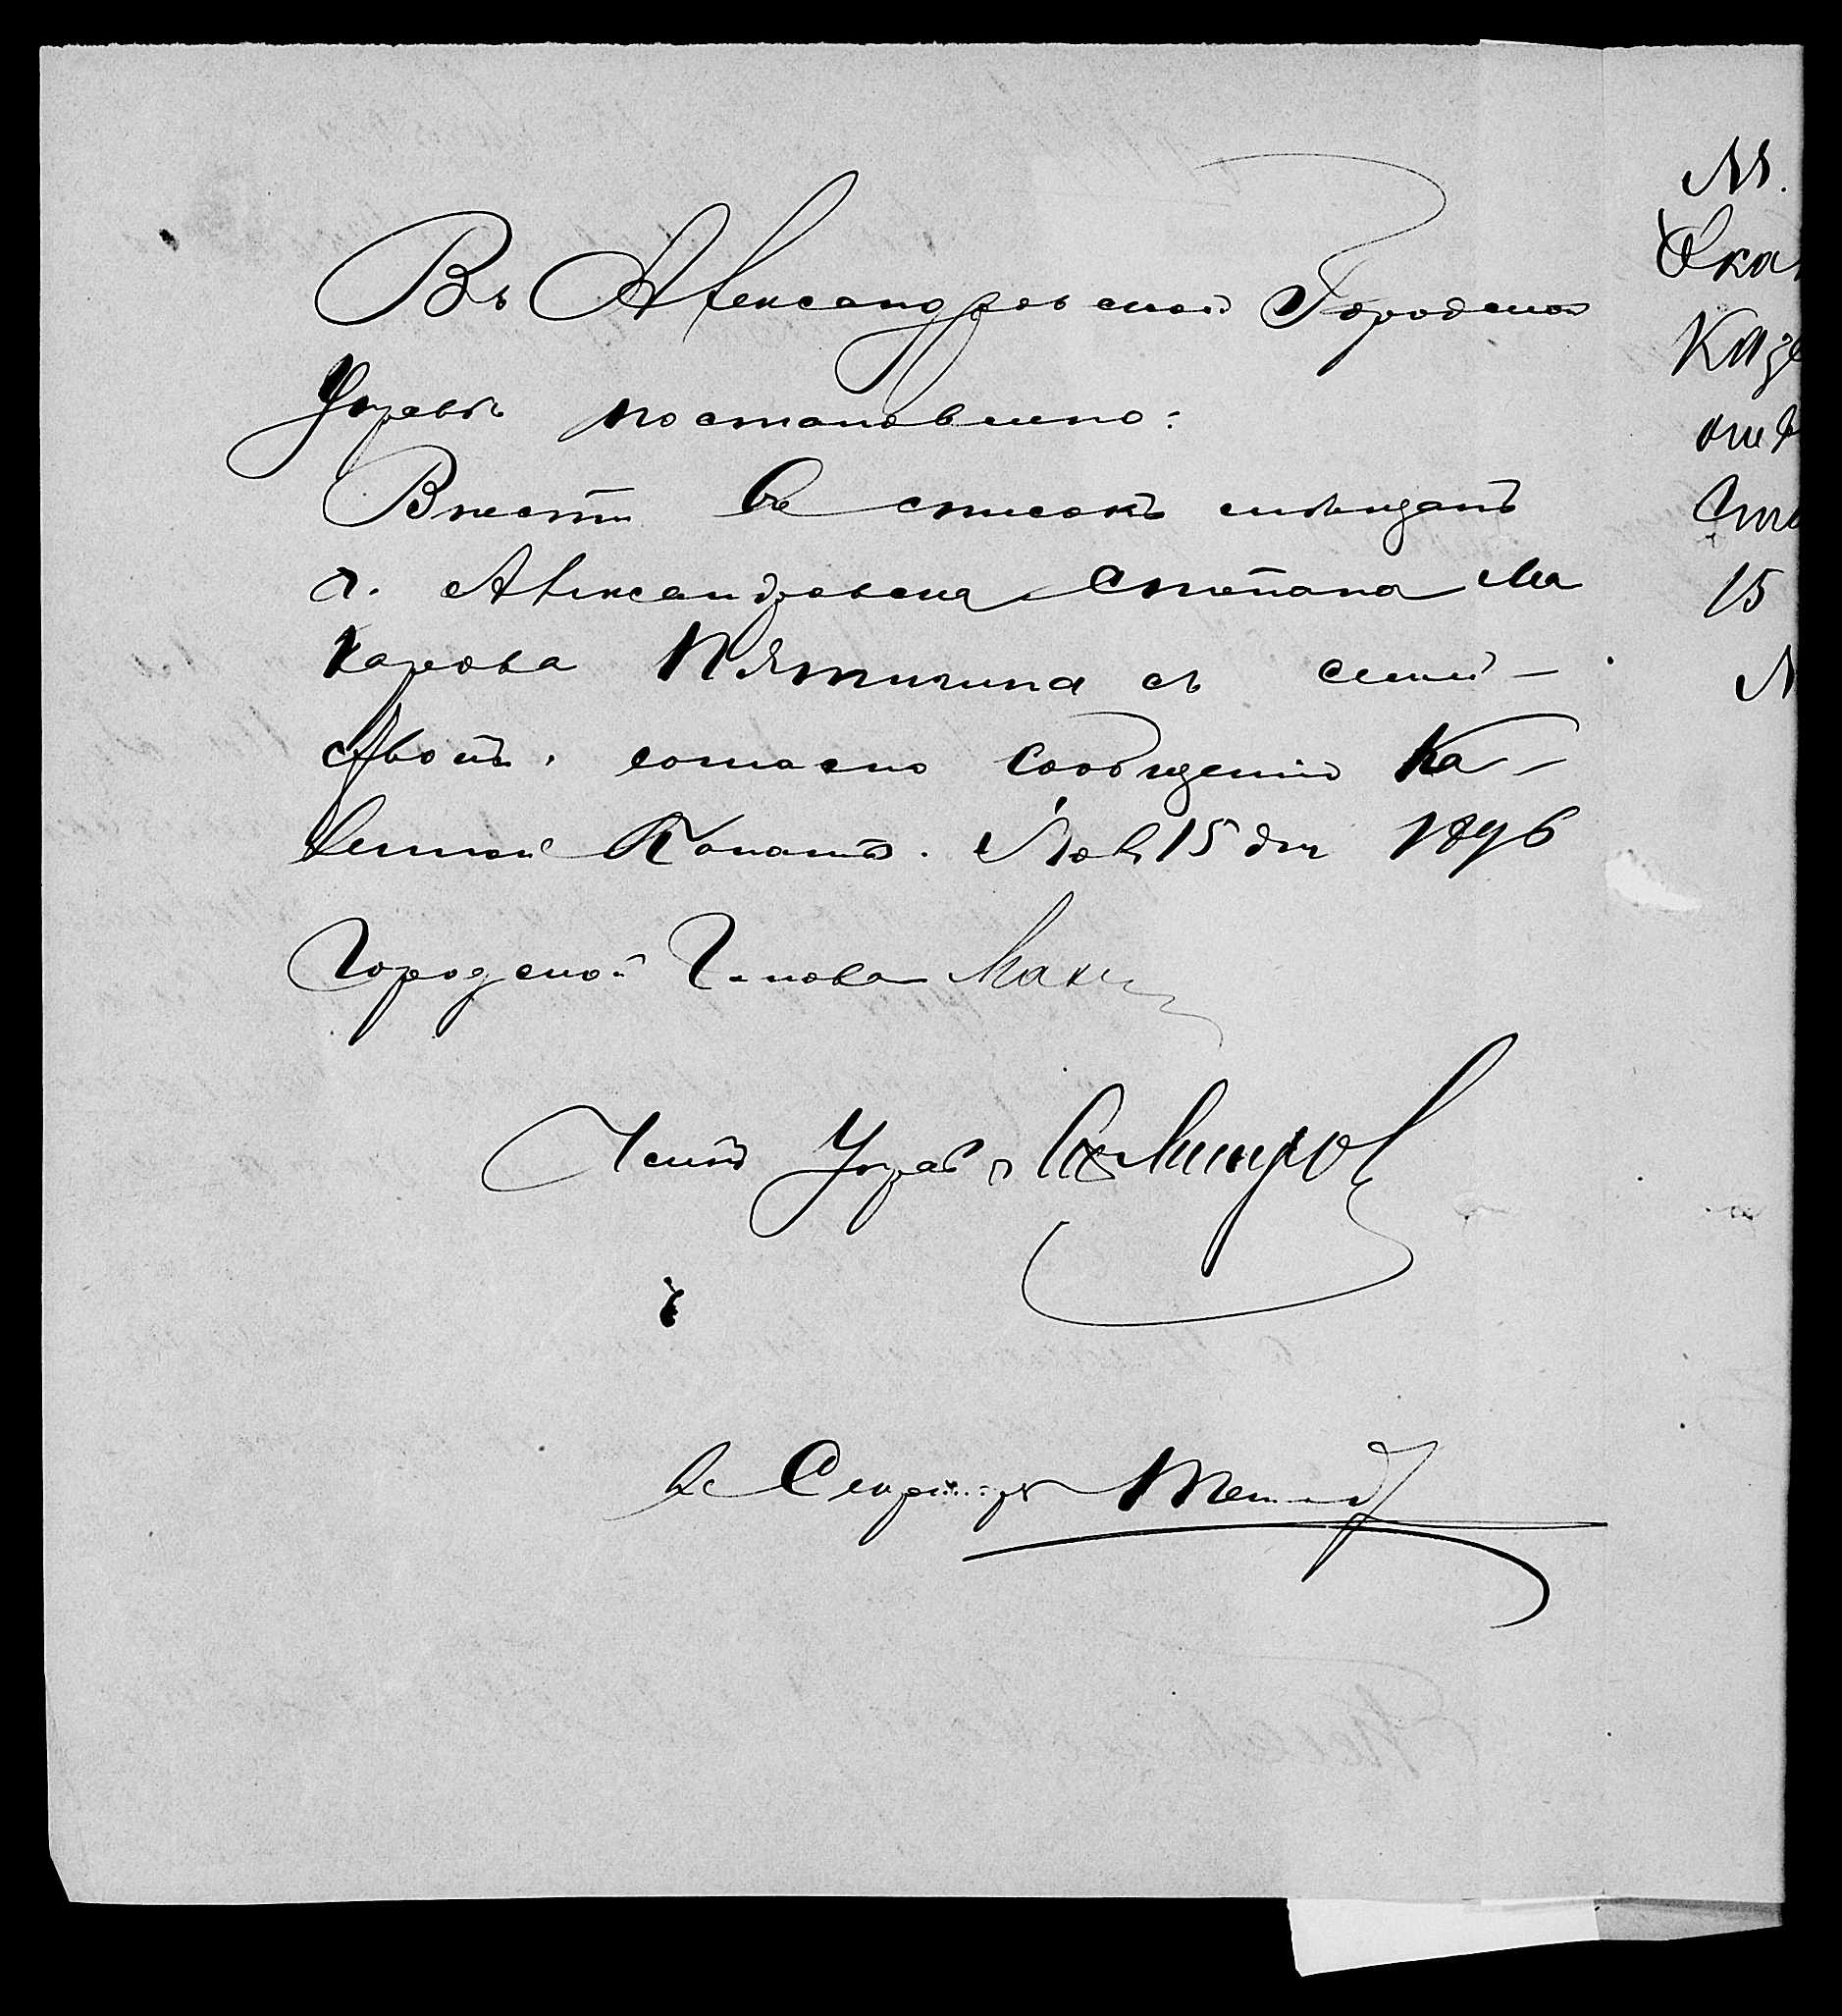 Въ Александровской Городской
Управѣ постановлено:
Внести въ списокъ мѣщанъ
г. Александровска Степана Ма
карова Пятигина съ семей-
ствомъ, согласно сообщенію Ка-
зенной Палаты. Нояб 15 дня 1896
Городской Голова
Членъ Управы
Секретарь
№.
Ука
Казе
Сте
15